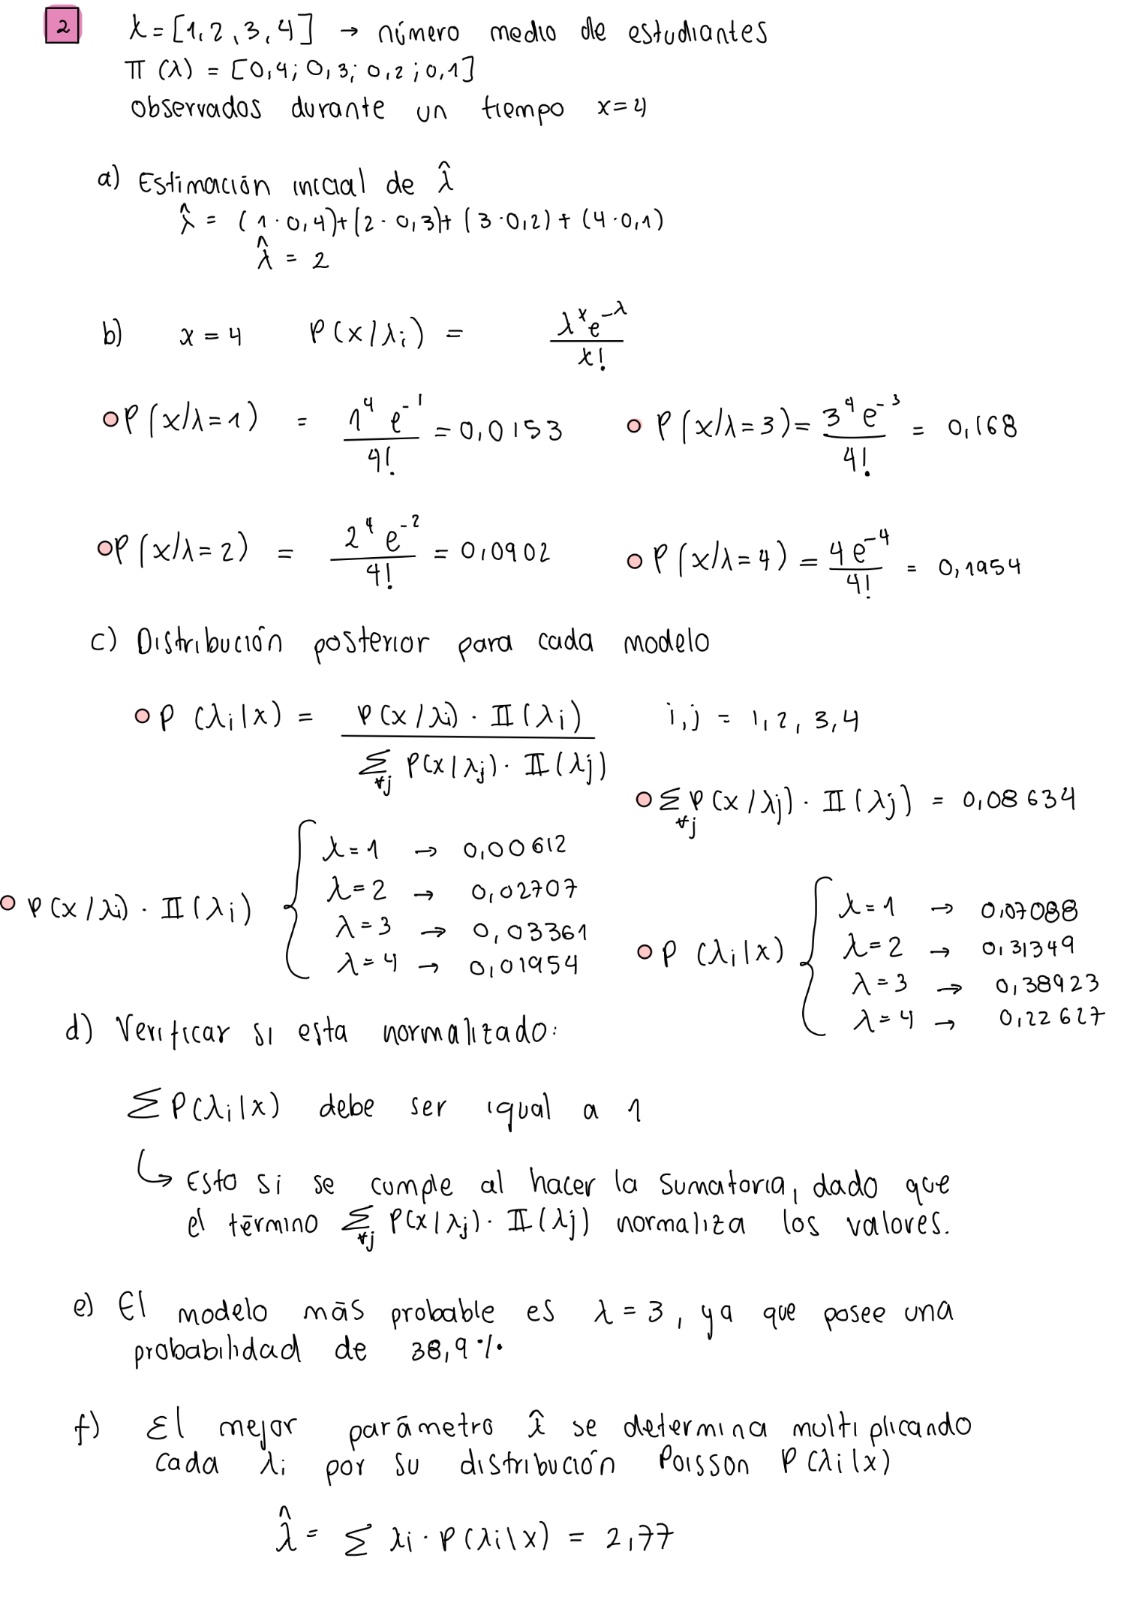 2 λ = [1, 2, 3, 4] → número medio de estudiantes
π (λ) = [0,4; 0,3; 0,2; 0,1]
observados durante un tiempo x=4
a) Estimación inicial de λ̂
λ̂ = (1·0,4)+(2·0,3)+(3·0,2)+(4·0,1)
λ̂ = 2
b) x = 4 P(x/λi) = λ^x e^-λ / x!
P(x/λ=1) = 1^4 e^-1 / 4! = 0,0153 P(x/λ=3) = 3^4 e^-3 / 4! = 0,168
P(x/λ=2) = 2^4 e^-2 / 4! = 0,0902 P(x/λ=4) = 4 e^-4 / 4! = 0,1954
c) Distribución posterior para cada modelo
P (λi|x) = P(x/λi) · Π(λi) / Σ∀j P(x|λj) · Π(λj) i,j = 1, 2, 3, 4
Σ∀j P(x/λj) · Π(λj) = 0,08634
P(x/λi) · Π(λi) { λ=1 → 0,00612
λ=2 → 0,02707
λ=3 → 0,03361
λ=4 → 0,01954
P (λi|x) { λ=1 → 0,07088
λ=2 → 0,31349
λ=3 → 0,38923
λ=4 → 0,22627
d) Verificar si esta normalizado:
Σ P(λi|x) debe ser igual a 1
↳ Esto si se cumple al hacer la sumatoria, dado que
el término Σ∀j P(x|λj) · Π(λj) normaliza los valores.
e) El modelo más probable es λ = 3, ya que posee una
probabilidad de 38,9%.
f) El mejor parámetro λ̂ se determina multiplicando
cada λi por su distribución Poisson P(λi|x)
λ̂ = Σ λi · P(λi|x) = 2,77